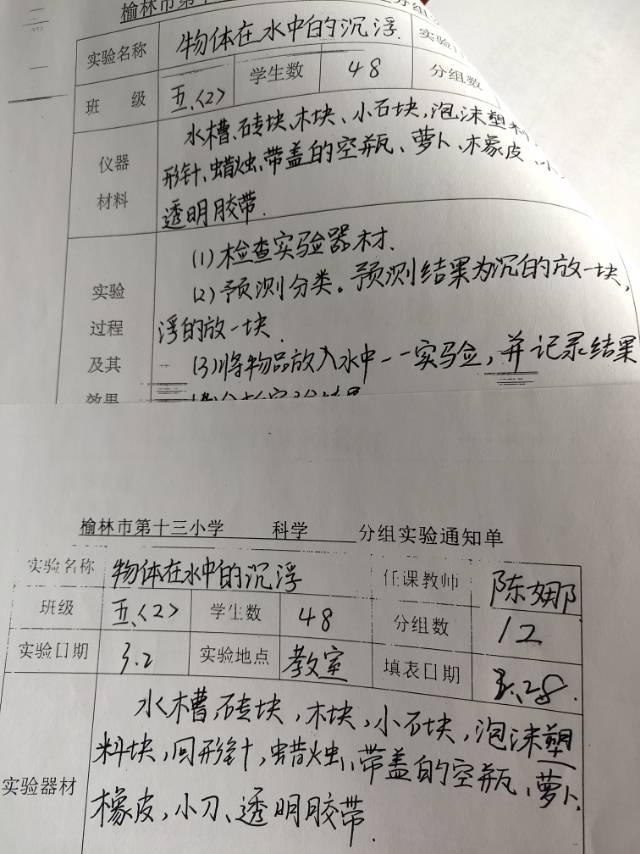 榆林市第十 分组
实验名称 物体在水中的沉浮 实验
班 级 五〈2〉 学生数 48 分组数
仪器 水槽、砖块、木块、小石块,泡沫塑料
形针、蜡烛、带盖的空瓶、萝卜、橡皮、小
材料 透明胶带.
(1)检查实验器材.
实验 (2)预测分类。预测结果为沉的放一块,
过程 浮的放一块.
及其 (3)将物品放入水中一一实验,并记录结果
效果
榆林市第十三小学 科学 分组实验通知单
实验名称 物体在水中的沉浮 任课教师 陈娜
班级 五〈2〉 学生数 48 分组数 12
实验日期 3.2 实验地点 教室 填表日期
水槽,砖块,木块,小石块,泡沫塑
料块,回形针,蜡烛,带盖的空瓶、萝卜、
实验器材 橡皮,小刀、透明胶带.